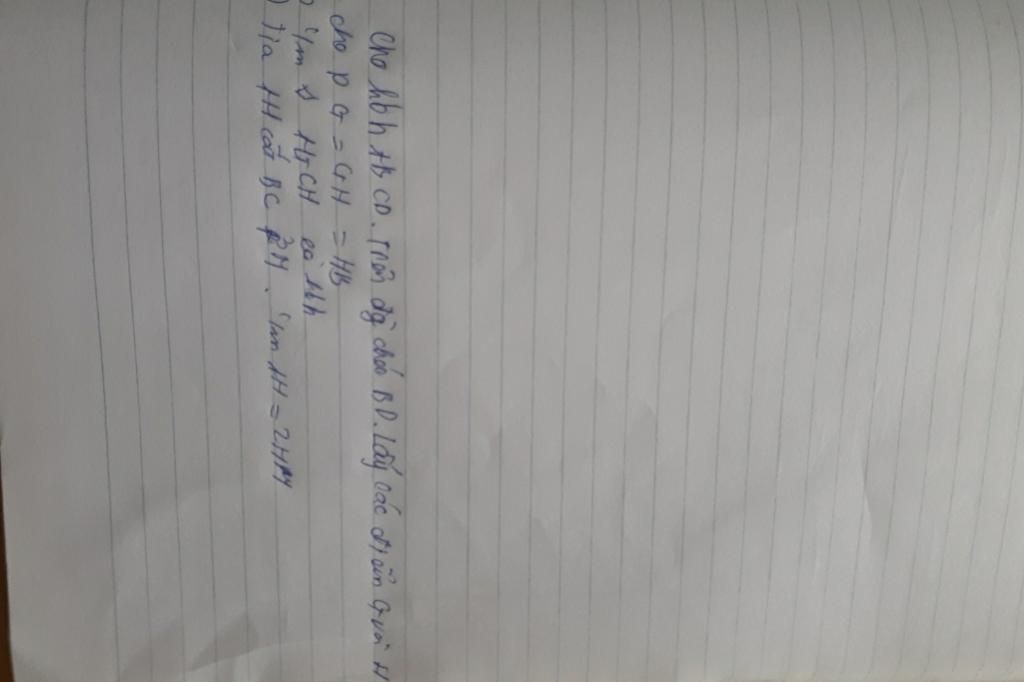 Cho hbh ABCD. Trên đg chéo BD. lấy các điểm G và H
cho DG = GH = HB
c/m ◊ AGCH là hbh
) Tia AH cắt BC ở M. c/m AH = 2HM